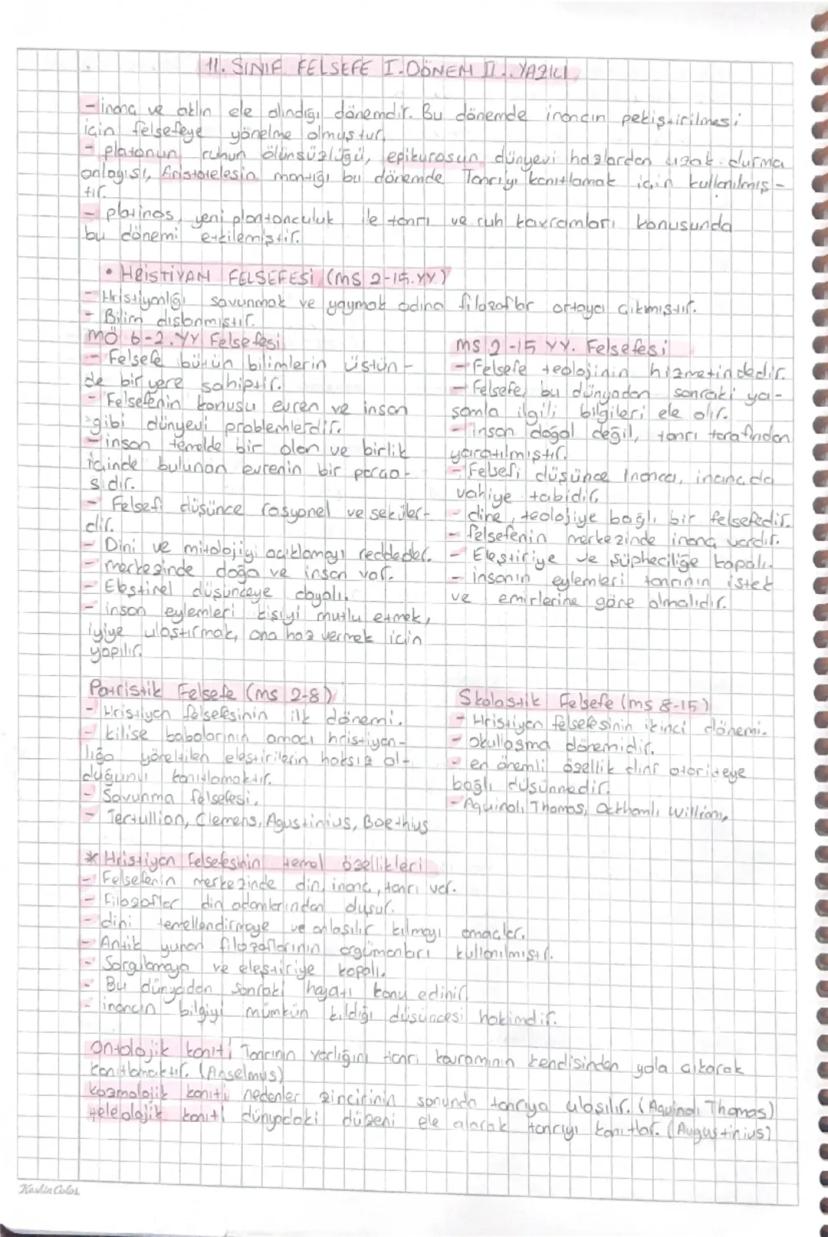 11. SINIF FELSEFE I. DÖNEM II. YAZILI
- inanç ve aklın ele alındığı dönemdir. Bu dönemde inancın pekiştirilmesi
için felsefeye yönelme olmuştur.
- platonun ruhun ölünsüzlüğü, epikurosun dünyevi hazlardan uzak durma
anlayışı, Aristotelesin mantığı bu dönemde Tanrıyı kanıtlamak için kullanılmış-
tır.
- platinos, yeni plantonculuk ile tanrı ve ruh kavramları konusunda
bu dönemi etkilemiştir.
• HRİSTİYAN FELSEFESİ (MS 2-15.YY.)
- Hristiyanlığı savunmak ve yaymak adına filozoflar ortaya çıkmıştır.
- Bilim dışlanmıştır.
MÖ 6-2.YY Felsefesi
- Felsefe bütün bilimlerin üstün-
de bir yere sahiptir.
- Felsefenin konusu evren ve insan
gibi dünyevi problemlerdir.
- insan temelde bir olan ve birlik
içinde bulunan evrenin bir parça-
sıdır.
- Felsefi düşünce rasyonel ve seküler-
dir.
- Dini ve mitolojiyi açıklamayı reddeder.
- merkezinde doğa ve insan var.
- Eleştirel düşünceye dayalı.
- insan eylemleri kişiyi mutlu etmek,
iyiye ulaştırmak, ona haz vermek için
yapılır.
MS 2-15 YY. Felsefesi
- Felsefe teolojinin hizmetindedir.
- Felsefe, bu dünyadan sonraki ya-
şamla ilgili bilgileri ele alır.
- insan doğal değil, tanrı tarafından
yaratılmıştır.
- Felsefi düşünce inanca, inançda
vahiye tabidir.
- dine, teolojiye bağlı bir felsefedir.
- felsefenin merkezinde inanç vardır.
- Eleştiriye ve şüpheciliğe kapalı.
- insanın eylemleri tanrının istek
ve emirlerine göre olmalıdır.
Patristik Felsefe (MS 2-8)
- Hristiyan felsefesinin ilk dönemi.
- kilise babalarının amacı hristiyan-
lığa yöneltilen eleştirilerin haksız ol-
duğunu kanıtlamaktır.
- Savunma felsefesi.
- Tertullian, Clemens, Agustinius, Boethius
Skolastik Felsefe (MS 8-15)
- Hristiyan felsefesinin ikinci dönemi.
- okullaşma dönemidir.
- en önemli özellik dini otoriteye
bağlı düşünmedir.
- Aquinalı Thomas, Ockhamlı William,
* Hristiyan felsefesinin temel özellikleri
- Felsefenin merkezinde din, inanç, tanrı var.
- Filozoflar din adamlarından oluşur.
- dini temellendirmeye ve anlaşılır kılmayı amaçlar.
- Antik yunan filozoflarının argümanları kullanılmıştır.
- Sorgulamaya ve eleştiriye kapalı.
- Bu dünyadan sonraki hayatı konu edinir.
- inancın bilgiyi mümkün kıldığı düşüncesi hakimdir.
Ontolojik kanıtı Tanrının varlığını tanrı kavramının kendisinden yola çıkarak
kanıtlamaktır. (Anselmus)
kozmolojik kanıtı nedenler zincirinin sonunda tanrıya ulaşılır. (Aquinalı Thomas)
teleolojik kanıtı dünyadaki düzeni ele alarak tanrıyı kanıtlar. (Augustinius)